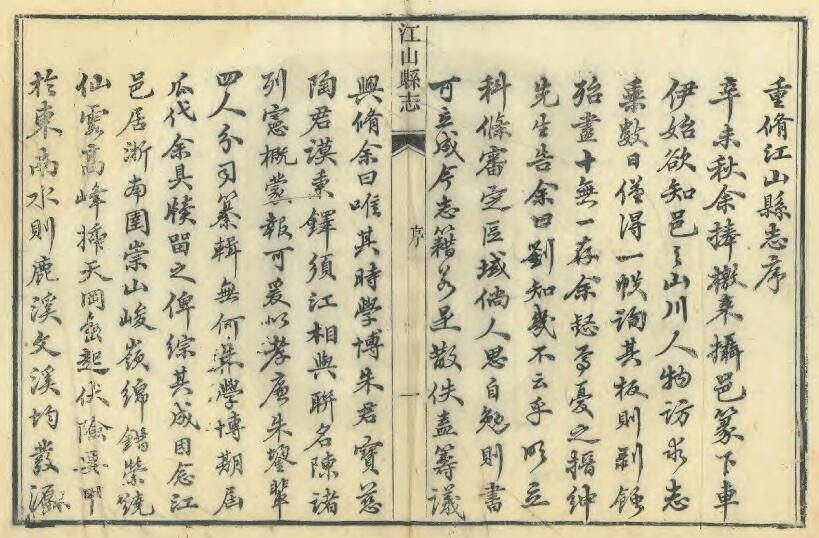 重脩江山縣志序
辛未秋余捧檄來攝邑篆下車
伊始欲知邑之山川人物訪求志
乘數日僅得一帙詢其板則剥蝕
殆盡十無一存余慭焉憂之搢紳
先生告余曰劉知幾不云乎明立
科條審定區域倘人思自勉則書
可立成今志籍若是散佚盍籌議
江山縣志
序
一
興脩余曰唯其時學博朱君寶慈
陶君謨秉鐸須江相與聯名陳諸
列憲概蒙報可爰以孝廉朱鑾輩
四人分司纂輯無何朱學博期屆
瓜代余具牘留之俾綜其成因念江
邑居浙南圉崇山峻嶺綿錯縈繞
仙霞高峰插天岡巒起伏險要甲
於東南水則鹿溪文溪均發源